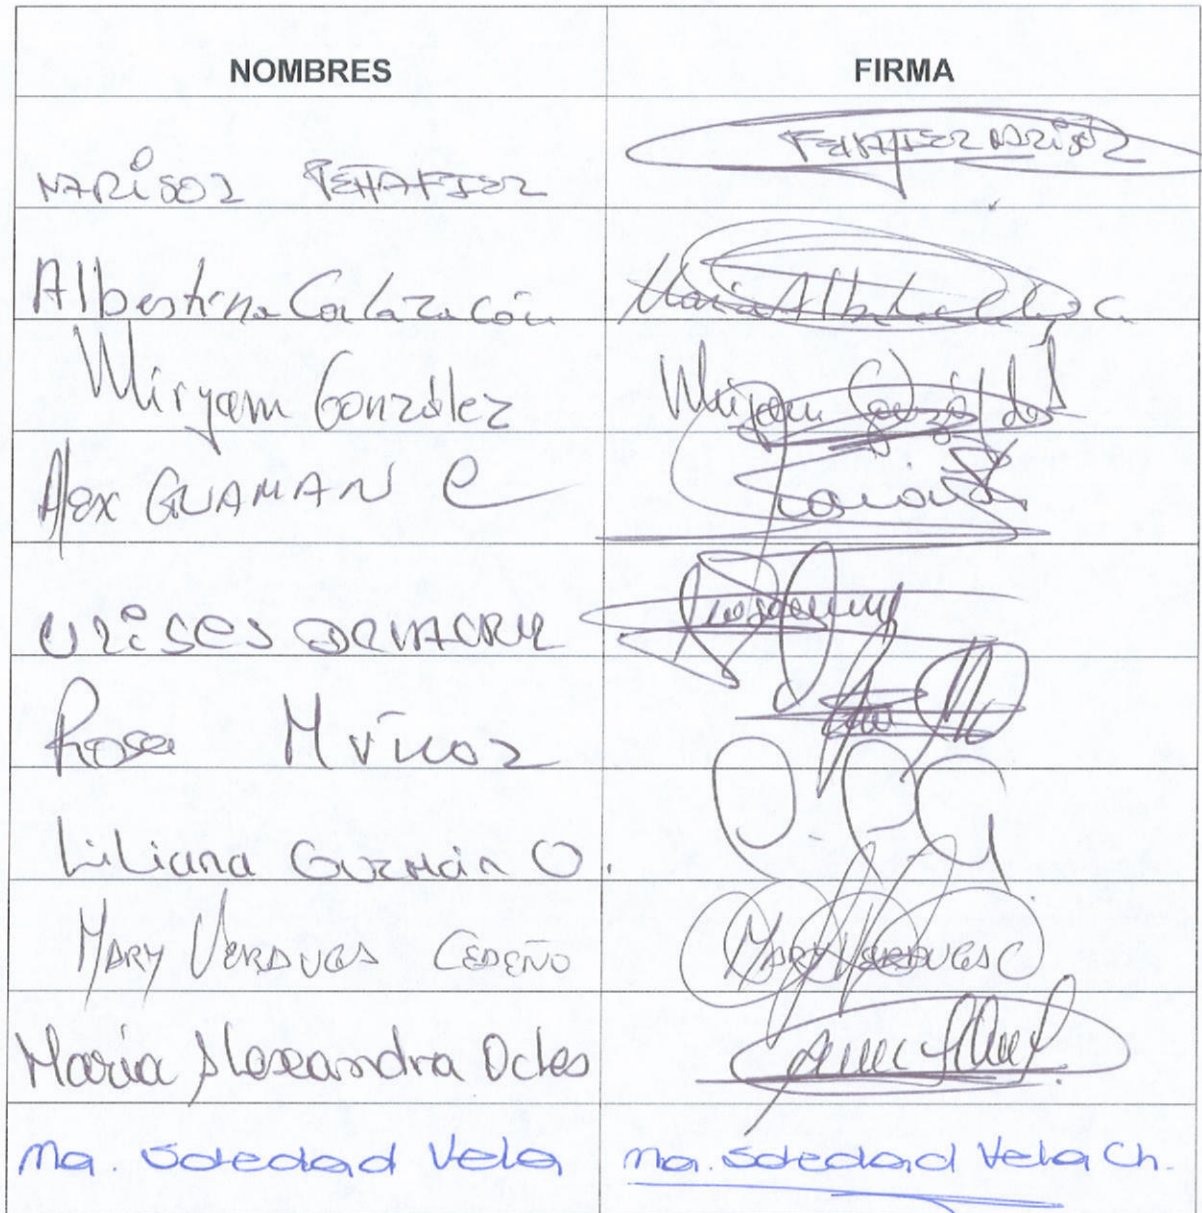 NOMBRES FIRMA
MARISOL PEÑAFIEL PEÑAFIEL MARISOL
Albertina Calazacón María Albertina C
Miryam González Miryam González
Alex GUAMAN C
ULISES
Rosa Muñoz
Liliana Guzmán O.
MARY VERDUGA CEDEÑO MARY VERDUGA C
María Alexandra Ocles
Ma. Soledad Vela Ma. Soledad Vela Ch.